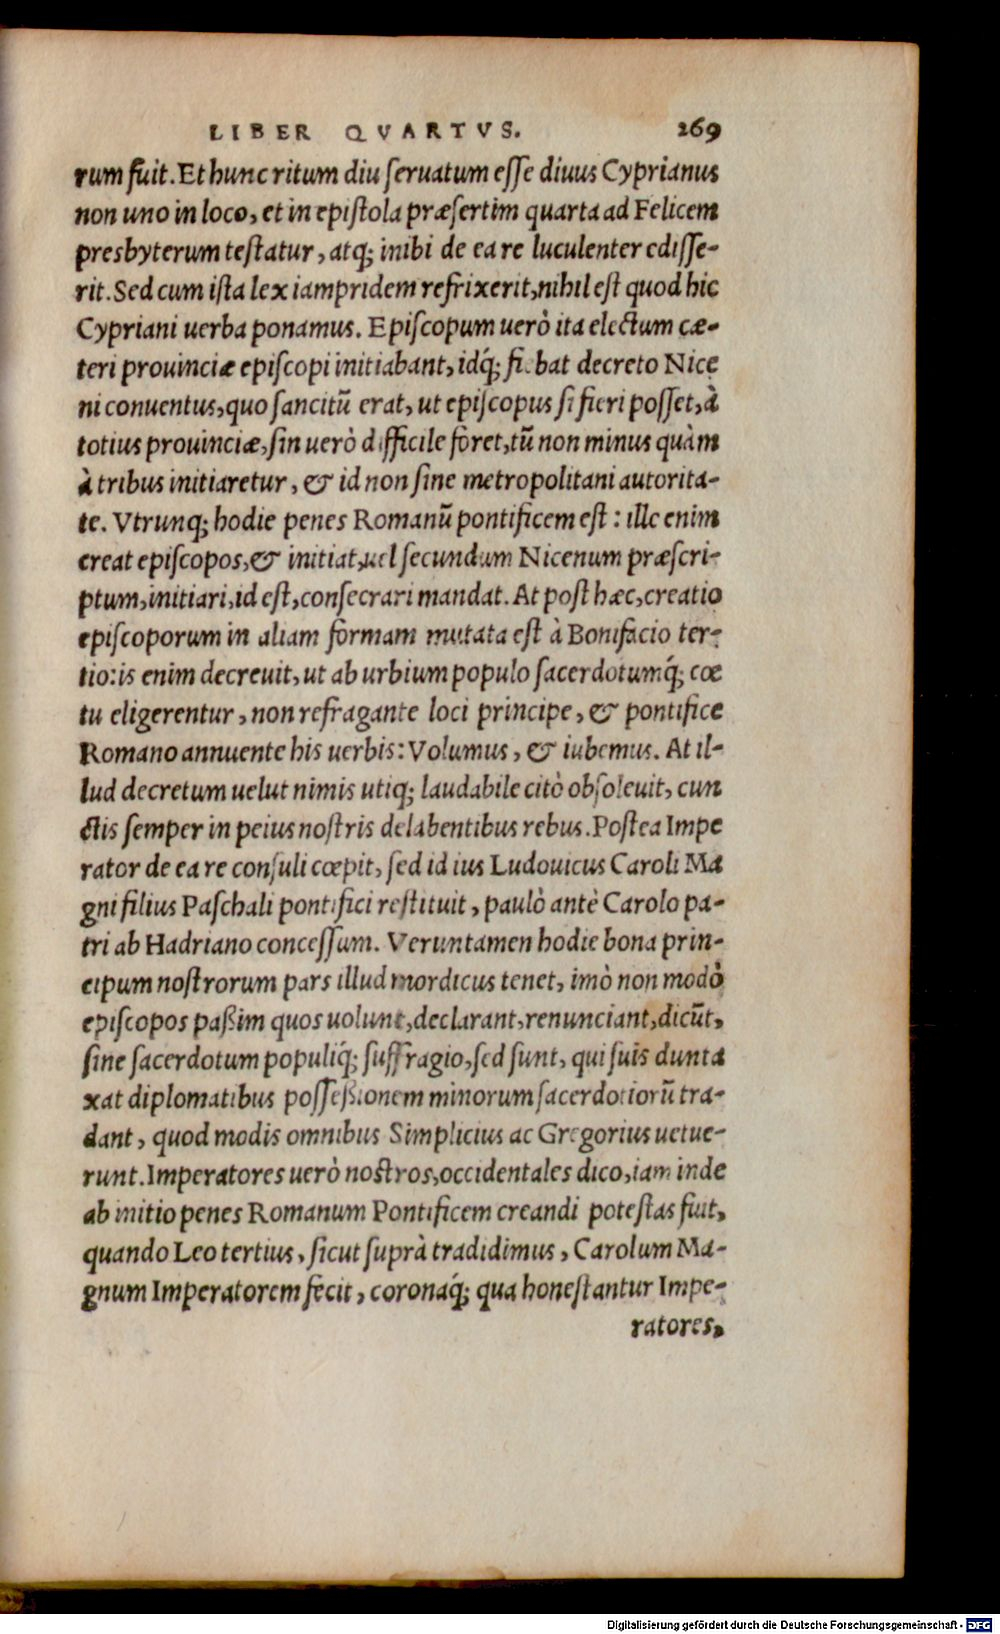 LIBER QVARTVS. 269
rum fuit. Et hunc ritum diu seruatum esse diuus Cyprianus
non uno in loco, et in epistola præsertim quarta ad Felicem
presbyterum testatur, atq; inibi de ea re luculenter edisse-
rit. Sed cum ista lex iampridem refrixerit, nihil est quod hic
Cypriani uerba ponamus. Episcopum uerò ita electum cæ-
teri prouinciæ episcopi initiabant, idq́; fiebat decreto Nice
ni conuentus, quo sancitū erat, ut episcopus si fieri posset, à
totius prouinciæ, sin uerò difficile foret, tū non minus quàm
à tribus initiaretur, & id non sine metropolitani autorita-
te. Vtrunq; hodie penes Romanū pontificem est: ille enim
creat episcopos, & initiat, uel secundum Nicenum præscri-
ptum, initiari, id est, consecrari mandat. At post hæc, creatio
episcoporum in aliam formam mutata est à Bonifacio ter-
tio: is enim decreuit, ut ab urbium populo sacerdotumq́; cœ
tu eligerentur, non refragante loci principe, & pontifice
Romano annuente his uerbis: Volumus, & iubemus. At il-
lud decretum uelut nimis utiq; laudabile citò obsoleuit, cun
ctis semper in peius nostris delabentibus rebus. Postea Impe
rator de ea re consuli cœpit, sed id ius Ludouicus Caroli Ma
gni filius Paschali pontifici restituit, paulò antè Carolo pa-
tri ab Hadriano concessum. Veruntamen hodie bona prin-
cipum nostrorum pars illud mordicus tenet, imò non modò
episcopos paßim quos uolunt, declarant, renunciant, dicūt,
sine sacerdotum populiq́; suffragio, sed sunt, qui suis dunta
xat diplomatibus possessionem minorum sacerdotiorū tra-
dant, quod modis omnibus Simplicius ac Gregorius uetue-
runt. Imperatores uerò nostros, occidentales dico, iam inde
ab initio penes Romanum Pontificem creandi potestas fuit,
quando Leo tertius, sicut suprà tradidimus, Carolum Ma-
gnum Imperatorem fecit, coronaq́; qua honestantur Impe-
ratores,
Digitalisierung gefördert durch die Deutsche Forschungsgemeinschaft - DFG